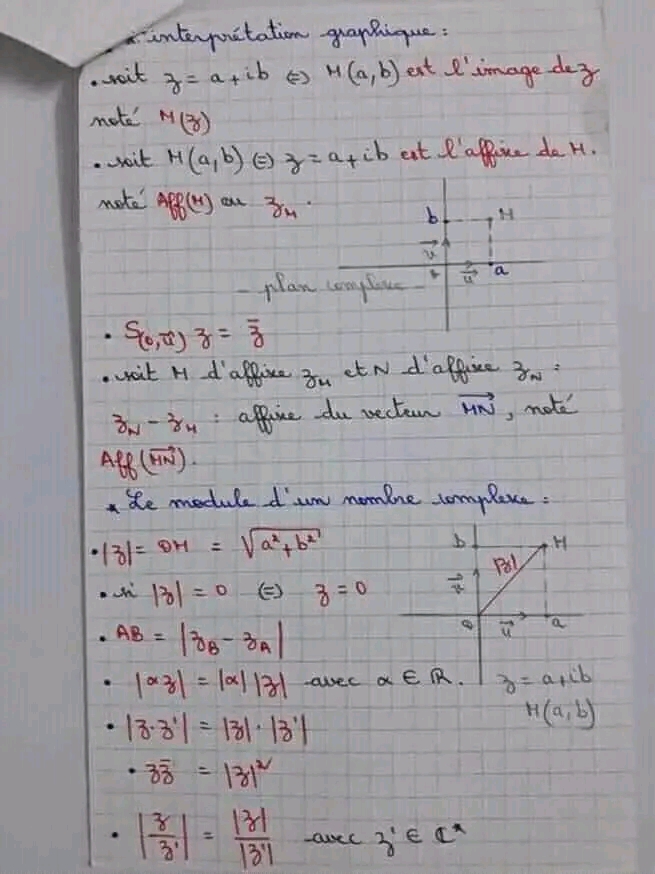 * interprétation graphique :
• soit z = a + ib ⇔ M(a,b) est l'image de z
noté M(z)
• soit M(a,b) ⇔ z = a + ib est l'affixe de M.
noté Aff(M) ou z_M .
b M
v
o u a
- plan complexe -
• S(o,u) z = z̄
• soit M d'affixe z_M et N d'affixe z_N :
z_N - z_M : affixe du vecteur MN⃗, noté
Aff(MN⃗).
* Le module d'un nombre complexe :
• |z| = OM = √(a² + b²)
b M
|z|
v
o u a
• si |z| = 0 ⇔ z = 0
• AB = |z_B - z_A|
• |αz| = |α| |z| avec α ∈ ℝ.
z = a + ib
M(a,b)
• |z·z'| = |z| · |z'|
• zz̄ = |z|²
• |z/z'| = |z|/|z'| avec z' ∈ ℂ*